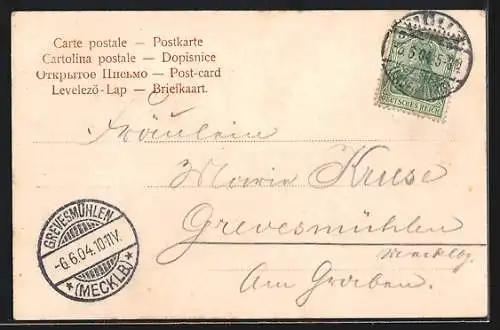 Carte postale — Postkarte
Cartolina postale — Dopisnice
Открытое Письмо — Post-card
Levelező-Lap — Briefkaart.
DEUTSCHES REICH
Fräulein
Maria Kruse
Grevesmühlen
Mecklbg.
Am Graben.
GREVESMÜHLEN
-6.6.04.10-11V.
* (MECKLB) *